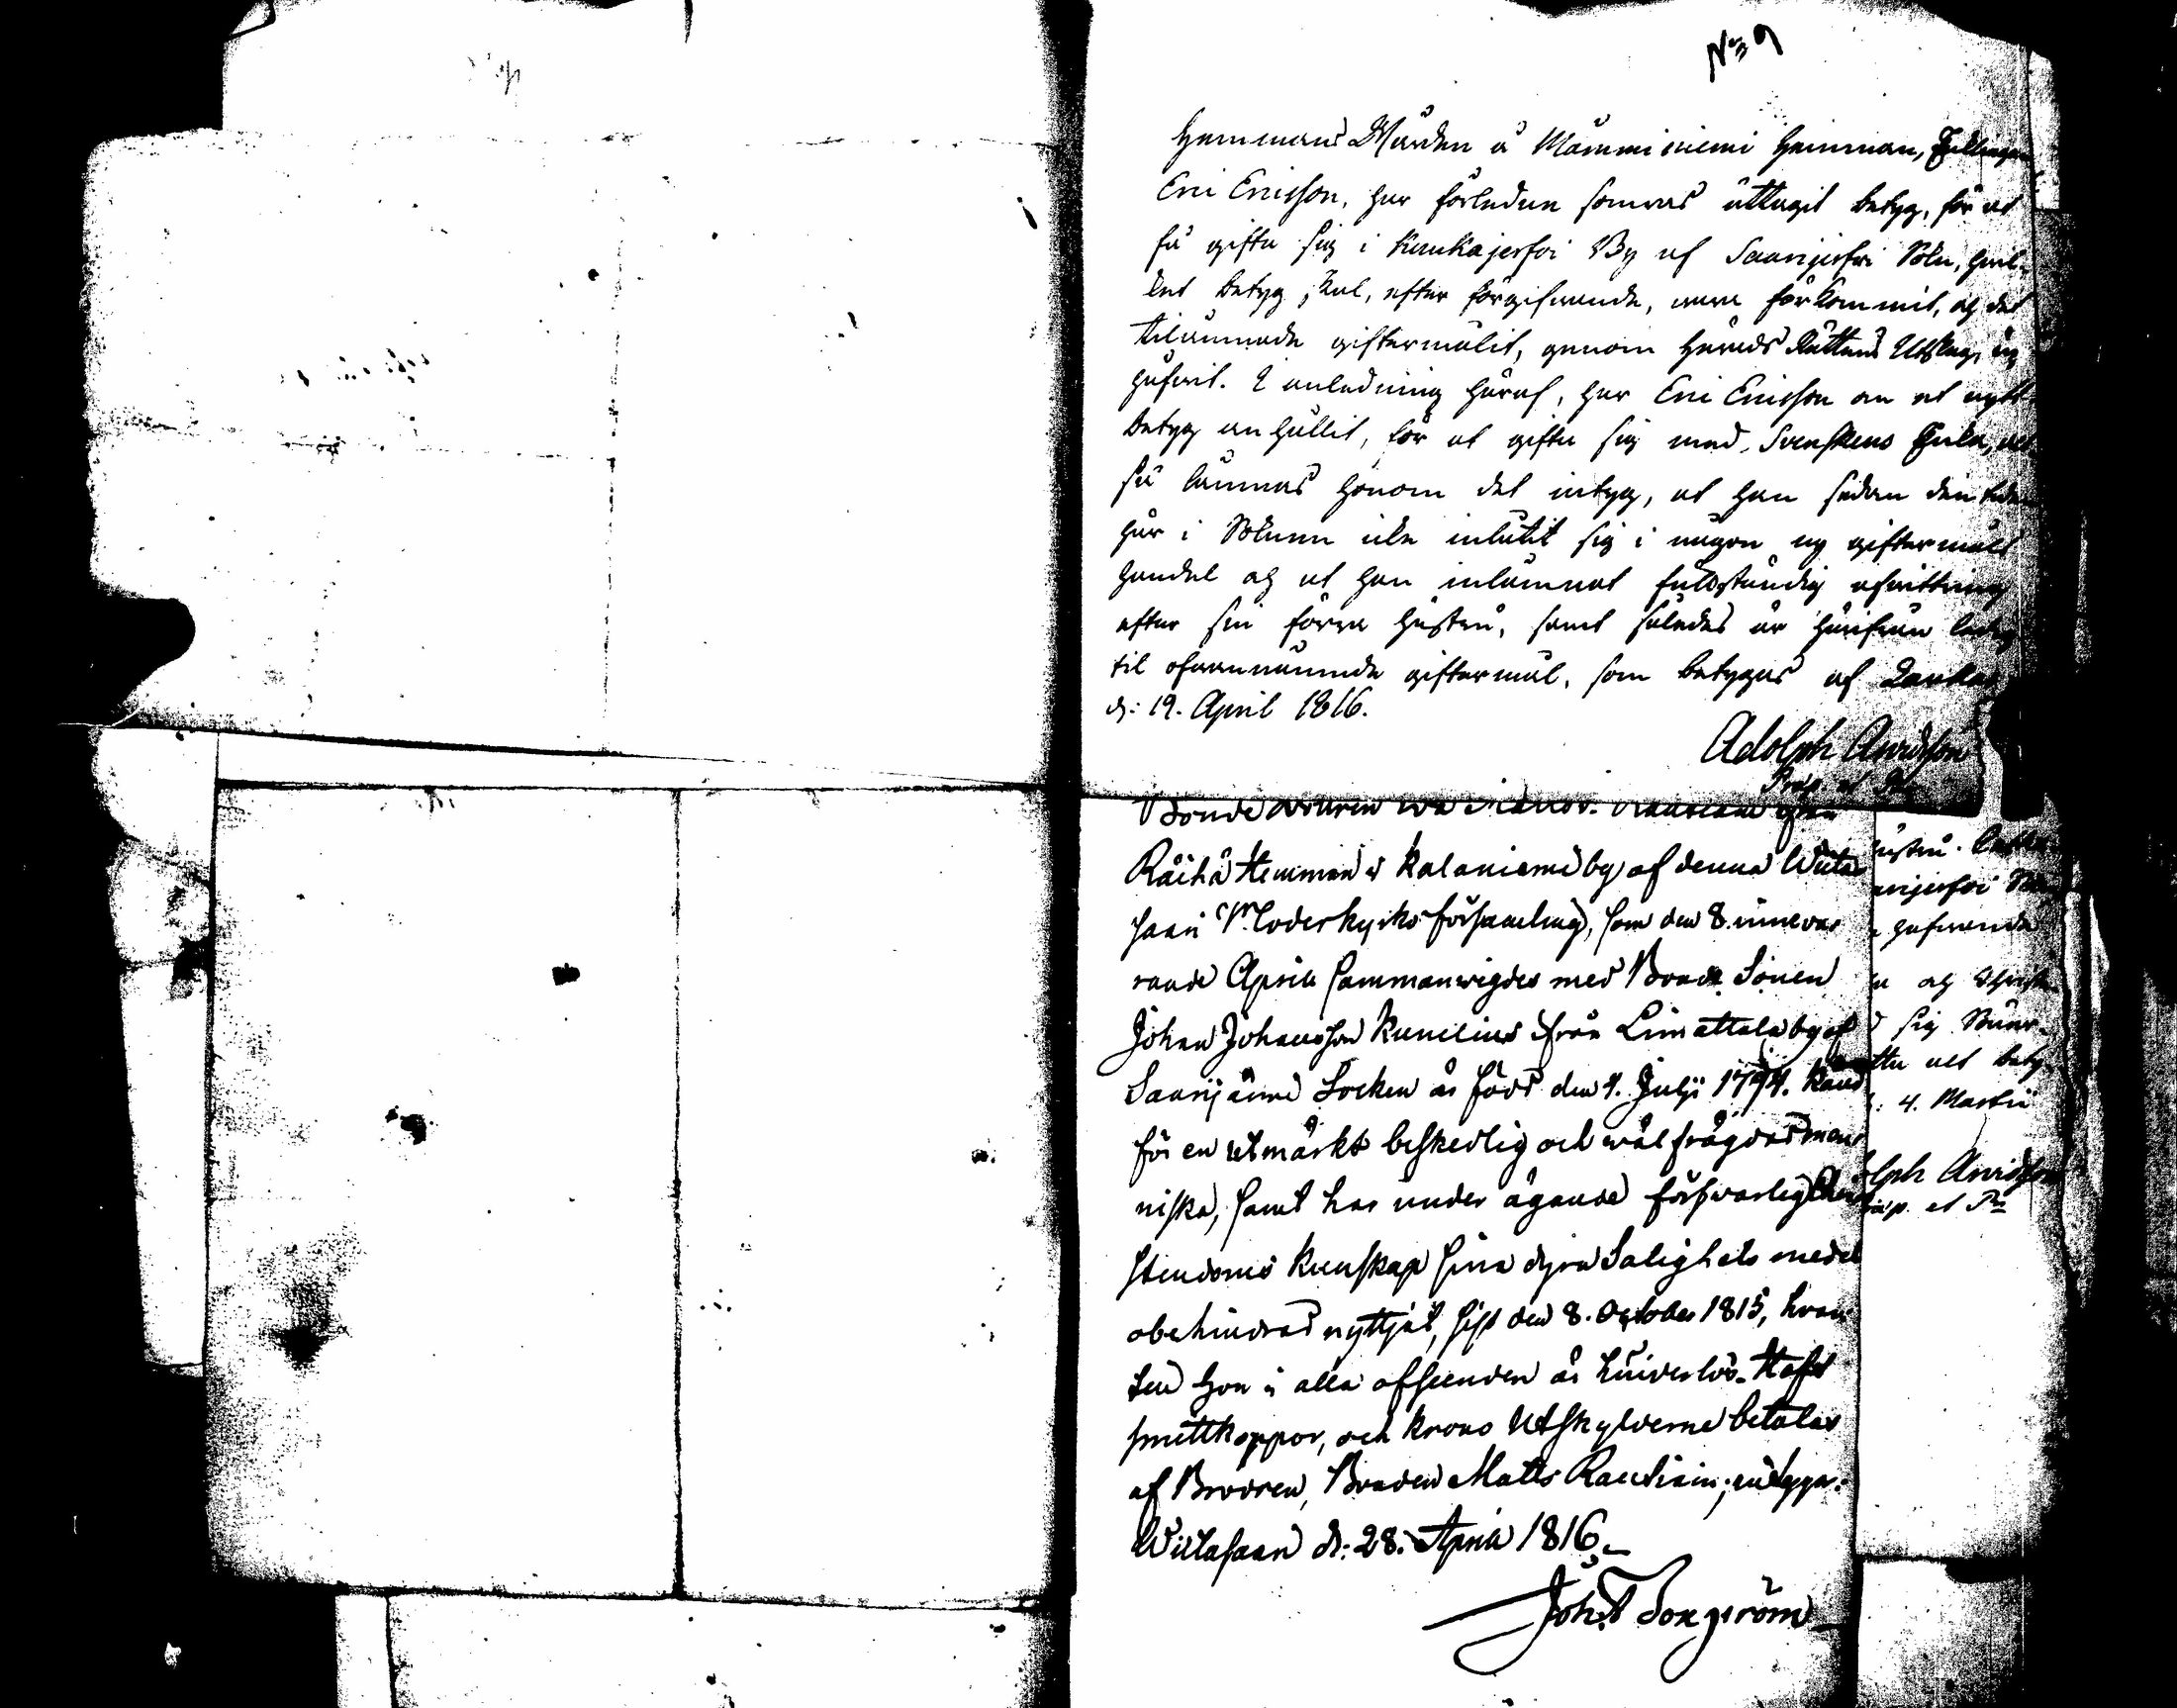 No 9
Hemmans Mården å Mämminiemi Hemman, Enklingen
Eric Ericsson, har förleden somras uttagit betyg, för at
få gifta sig i Kaukajerfvi By af Saarijerfvi Sokn, hvil-
ket betyg skal, efter förgifvande, vara förkommit, och det
tilämnade giftermålit, genom Härads Rättens Utslag, up
häfvit. I anledning häraf, har Eric Ericsson om et nytt
betyg anhållit, för at gifta sig med Svenskens Enka, alt
så lämnas honom det intyg, at han sedan den tiden
här i Soknen icke inlåtit sig i någon ny giftermåls
handel och at han inlämnat fullständig afvittring
efter sin förra hustru, samt således är härifrån ledig
til ofvannämnde giftermål, som betygas af Lauka
d: 19. April 1816.
Adolph Arvidsson
Præp. et
Bonde
Räihä Hemman i Kolaniemi by af denna Wiita-
saari Moderkyrko församling, som den 8. inneva-
rande April sammanvigdes med Bonde Sonen
Johan Johansson Kunelius ifrån Limattala by af
Saarijärvi Socken är född den 4. Julii 1794. känd
för en utmärkt beskedlig och välfrägdad men-
niska, samt har under ägande försvarlig Chri-
stendoms kunskap sina dyra Salighets medel
obehindrad nyttjat, sist den 8. October 1815, hvar-
ten hon i alla afseenden är hinderlös. Haft
smittkoppor, och Krono Utskylderne betalas
af Brodren, Bonden Matts Rautiain; intygar:
Wiitasaari d: 28. April 1816.
Joh. Forsström
hustru.
arijerfvi
gifvande
och Christen-
sig
alt bety-
4. Martii
olph Arvidsson
Præp. et Pr